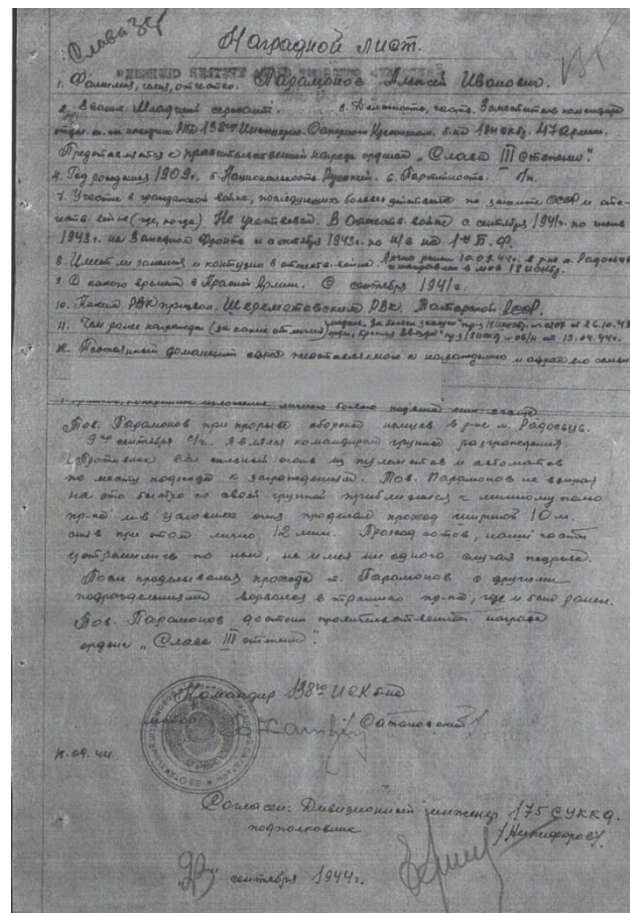 Слава 3ст
Наградной лист.
1. Фамилия, имя, отчество. Парамонов Алексей Иванович.
2. Звание. Младший сержант. 3. Должность, часть. Заместитель командира
138го Инженерно-Саперного б-на 47 Армии.
Представляется к правительственной награде ордену „Слава III степени".
4. Год рождения 1909 г. 5. Национальность Русский. 6. Партийность. б/п.
7. Участие в гражданской войне, последующих боевых действиях по защите СССР и отечеств. войне (где, когда) Не участвовал. В Отечеств. войне с сентября 1941 г. по июнь
1943 г. на Западном фронте и с октября 1943 г. по н/в на 1м Б.Ф.
8. Имеет ли ранения и контузии в отечеств. войне. Легко ранен 10.09.44 г. в р-не м. Радосьць
9. С какого времени в Красной Армии. С сентября 1941 г.
10. Каким РВК призван. Шереметовским РВК. Татарской АССР.
11. Чем ранее награжден (за какие отличия) 26.10.43
13.04.44 г.
12. Постоянный домашний адрес представляемого к награждению и адрес его семьи
Тов. Парамонов при прорыве обороны немцев в р-не м. Радосьць
9го сентября с/г. являлся командиром группы разграждения.
Противник вел сильный огонь из пулеметов и автоматов
по месту подхода к заграждениям. Тов. Парамонов не взирая
на это быстро со своей группой приблизился к минному полю
пр-ка и в условиях огня проделал проход шириной 10 м.
сняв при этом лично 12 мин. Проход готов, наши части
устремились по нем, не имея ни одного случая подрыва.
После проделывания прохода т. Парамонов с другими
подразделениями ворвался в траншею пр-ка, где и был ранен.
Тов. Парамонов достоин правительственной награды
ордена „Слава III степени".
Командир 138го ИСК б-на
майор /Сатановский/
09.44
Согласен: Дивизионный инженер 175 СУККД.
подполковник /Никифоров/
сентября 1944 г.